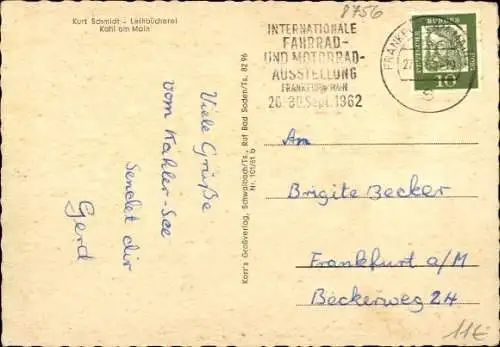 Kurt Schmidt - Leihbücherei
Kahl am Main
8756
INTERNATIONALE
FAHRRAD-
UND MOTORRAD-
AUSSTELLUNG
FRANKFURT/MAIN
26.-30. Sept. 1962
FRANKF
S
10
Viele Grüße
vom Kahler-See
sendet dir
Gerd
Korr's Großverlag, Schwalbach/Ts., Ruf Bad Soden/Ts. 82 96
Nr. 101/61 b
Am
Brigite Becker
Frankfurt a/M
Beckerweg 24
11€